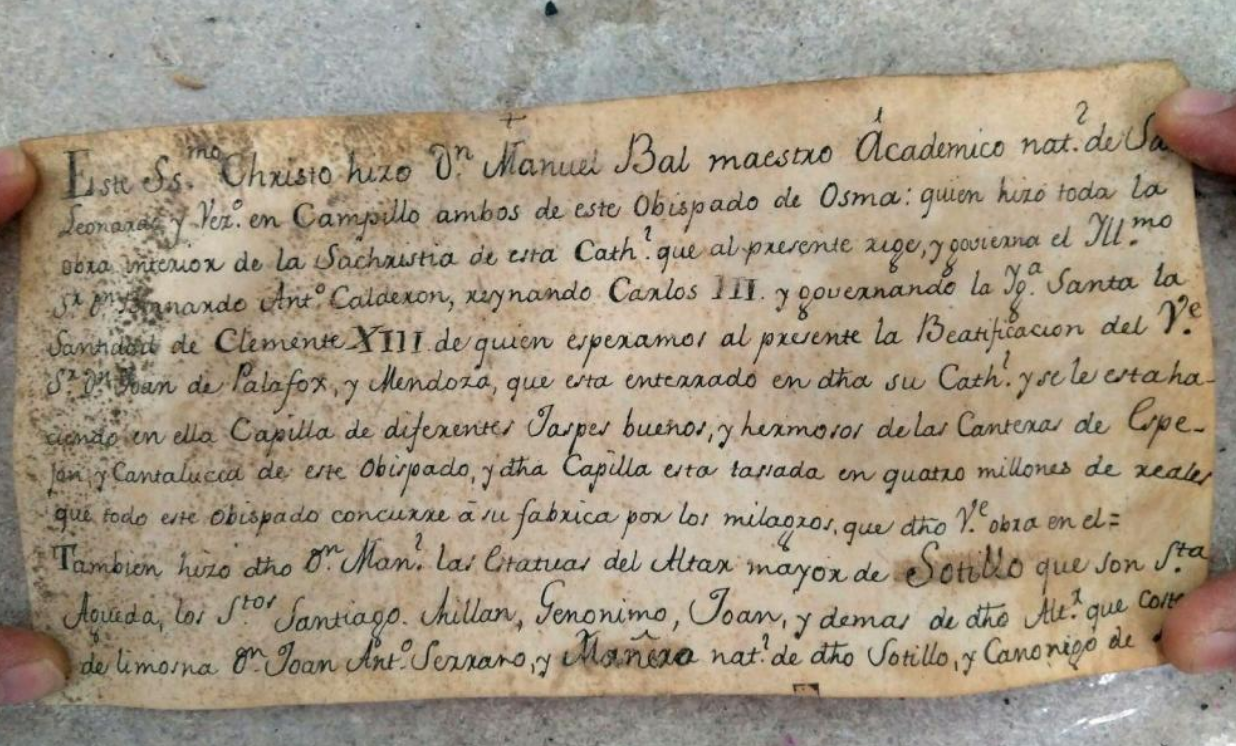 +
Este Ss.mo Christo hizo Dn. Manuel Bal maestro Académico nat.l de Sa
Leonardo y Vez.o en Campillo ambos de este Obispado de Osma: quien hizo toda la
obra interior de la Sachristia de esta Cath.l que al presente rige, y govierna el Yll.mo
Sr. Dn. Bernardo Ant.o Calderon, reynando Carlos III. y governando la Yg.a Santa la
Santidad de Clemente XIII. de quien esperamos al presente la Beatificacion del V.e
Sr. Dn. Joan de Palafox, y Mendoza, que esta enterrado en dha su Cath.l y se le esta ha-
ciendo en ella Capilla de diferentes Jaspes buenos, y hermosos de las Canteras de Espe-
jon, y Cantalucia de este Obispado, y dha Capilla esta tassada en quatro millones de reales
que todo este Obispado concurre à su fabrica por los milagros, que dho V.e obra en el=
Tambien hizo dho Dn. Man.l las Estatuas del Altar mayor de Sotillo que son S.ta
Agueda, los S.tos Santiago. Millan, Genonimo, Joan, y demas de dho Alt.r que coste
de limosna Dn. Joan Ant.o Serrano, y Mañero nat.l de dho Sotillo, y Canonigo de